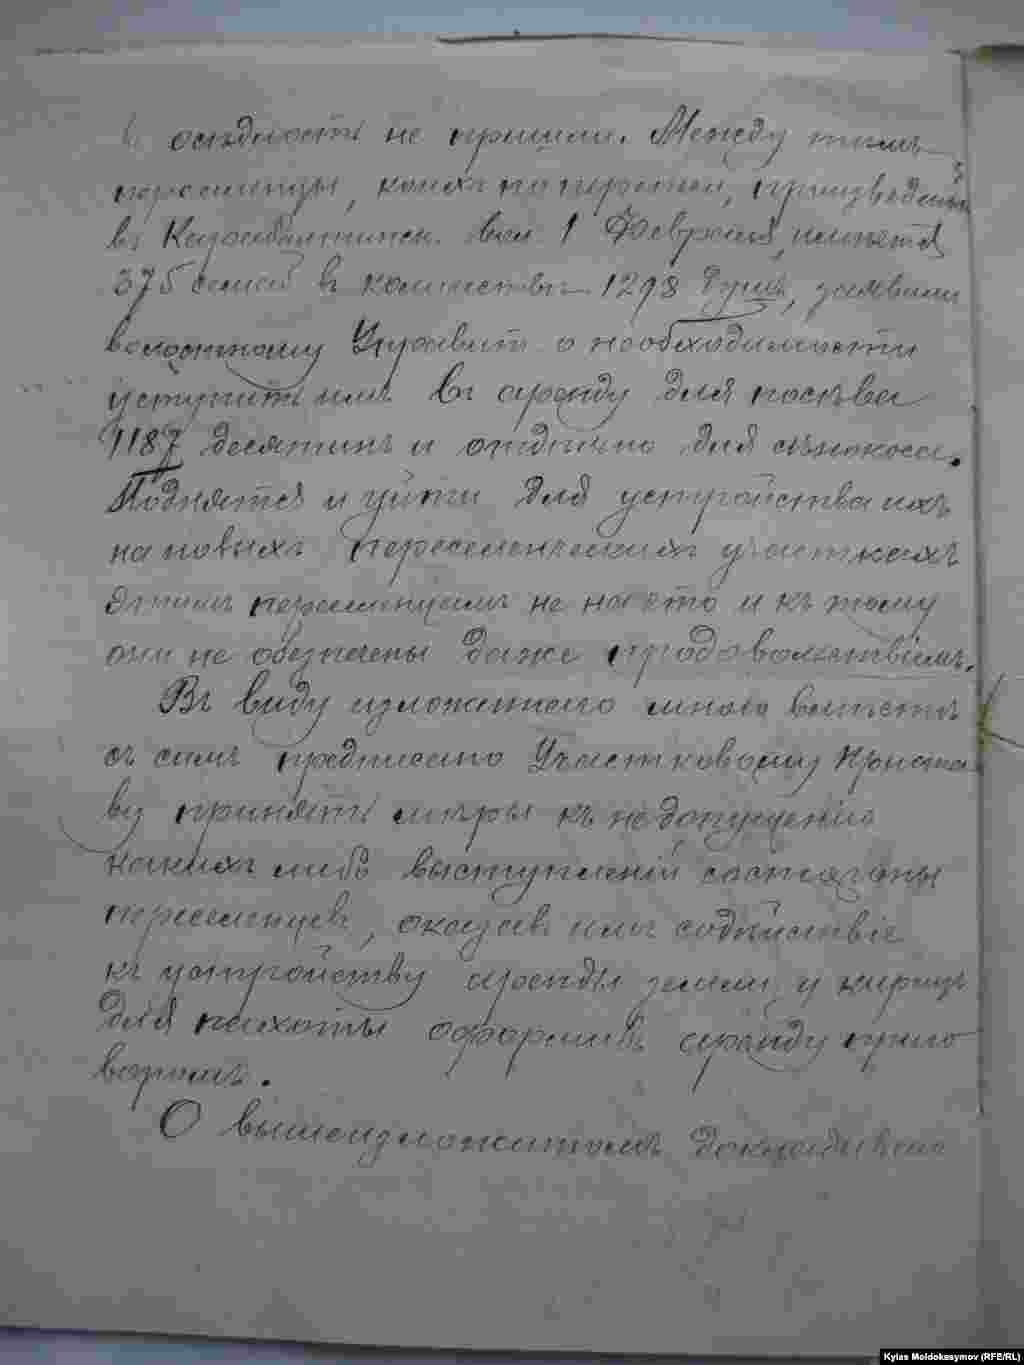 осѣдлость не пришли. Между тѣмъ
переселенцы, коихъ по переписи, произведенн
въ Карабалтинск. вол. 1 Февраля, имѣется
375 семей въ количествѣ 1298 душъ, заявили
волостному Управит. о необходимости
уступить имъ въ аренду для посѣва
1187 десятинъ и отдѣльно для сѣнокоса.
Подняться и уйти для устройства ихъ
на новыхъ переселенческихъ участкахъ
этимъ переселенцамъ не на что и къ тому
они не обезпечены даже продовольствіемъ.
Въ виду изложеннаго мною вмѣстѣ
съ симъ предписано Участковому Приста
ву принять мѣры къ недопущенію
какихъ либо выступленій со стороны
переселенцевъ, оказавъ имъ содѣйствіе
къ устройству аренды земли у киргизъ
для пахоты оформивъ аренду приго
воромъ.
О вышеизложенномъ докладываю
Kylas Moldokasymov (RFE/RL)